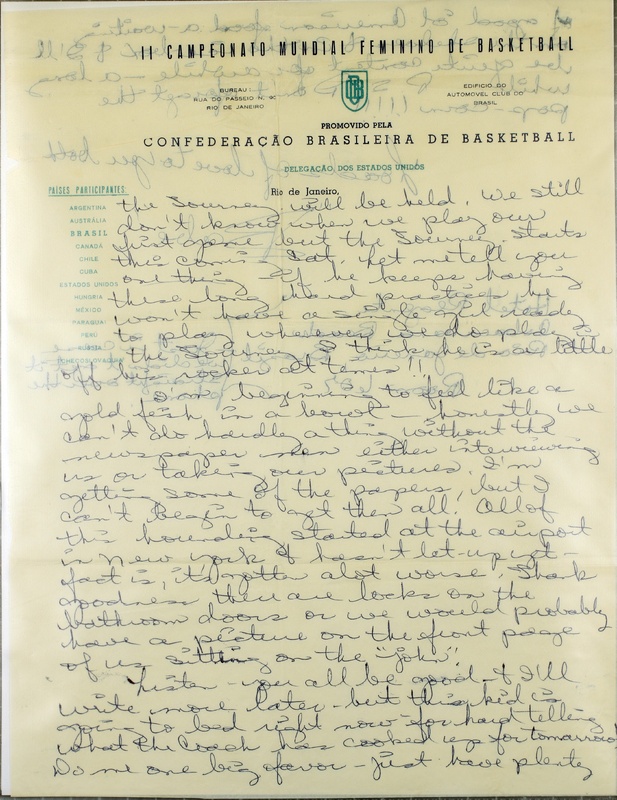 II CAMPEONATO MUNDIAL FEMININO DE BASKETBALL
BUREAU:
RUA DO PASSEIO N. 90
RIO DE JANEIRO
EDIFICIO DO
AUTOMOVEL CLUB DO
BRASIL
PROMOVIDO PELA
CONFEDERAÇÃO BRASILEIRA DE BASKETBALL
DELEGAÇÃO, DOS ESTADOS UNIDOS
PAÍSES PARTICIPANTES:
ARGENTINA
AUSTRÁLIA
BRASIL
CANADÁ
CHILE
CUBA
ESTADOS UNIDOS
HUNGRIA
MÉXICO
PARAGUAI
PERÚ
Rio de Janeiro,
the Tourney will be held. We still
don't know when we play our
first game but the Tourney starts
this comin - Sat. Let me tell you
one thing - If he keeps having
these long hard practices he
won't have a single girl ready
to play whenever we do play in
the Tourney. I think he is a little
off his rocker at times!!
I'm beginning to feel like a
gold fish in a bowl - honestly we
can't do hardly a thing without the
newspaper men either interviewing
us or taking our pictures. I'm
getting some of the papers, but I
can't begin to get them all. All of
this hounding started at the airport
in New York & hasn't let-up yet -
fact is, it's gotten alot worse. Thank
goodness there are locks on the
bathroom doors or we would probably
have a picture on the front page
of us sitting on the "john".
Listen - you all be good - & I'll
write more later - but this kid is
going to bed right now for hard telling
what the Coach has cooked up for tomorrow!
Do me one big favor - just have plenty